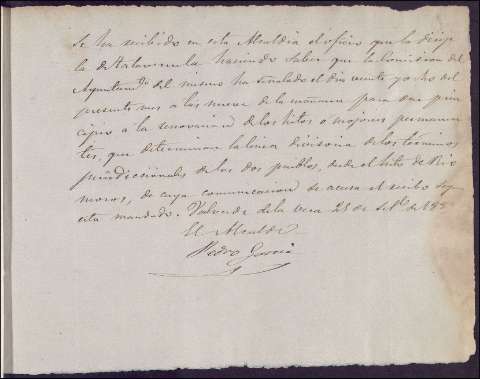 Se ha recibido en esta Alcaldia el oficio que la dirige
la de Talaveruela haciendo saber que la Comision del
Ayuntamto del mismo ha señalado el dia veinte y ocho del
presente mes a las nueve de la mañana para dar prin
cipio a la renovacion de los hitos o mojones permanen
tes, que determinan la linea divisoria de los terminos
jurisdiccionales de los dos pueblos, desde el hito de
de cuya comunicacion se acusa el recibo segn
esta mandado. Valverde de la vera 25 de de
El Alcalde
Pedro Garcia